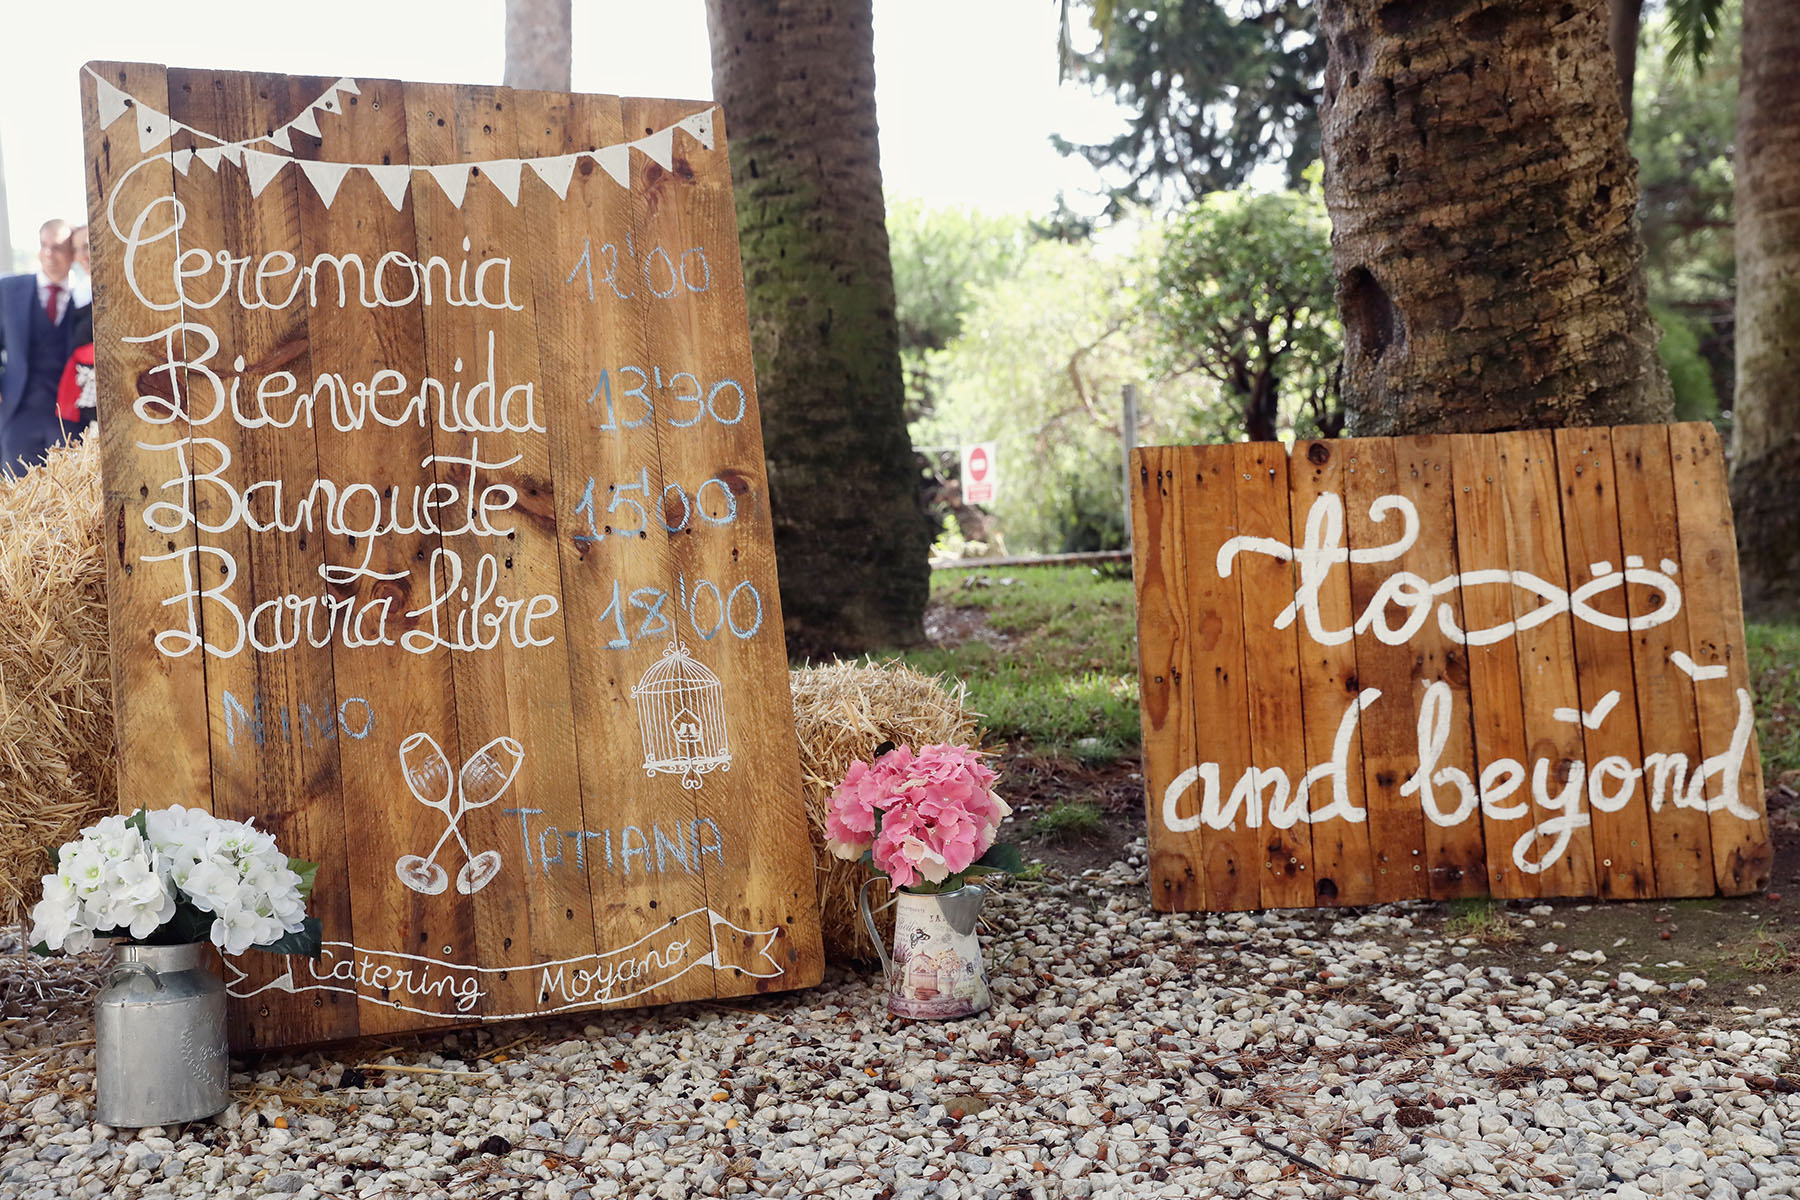 Ceremonia 12'00
Bienvenida 13'30
Banquete 15'00
Barra Libre 18'00
NINO
TATIANA
Catering Moyano
to
and beyond